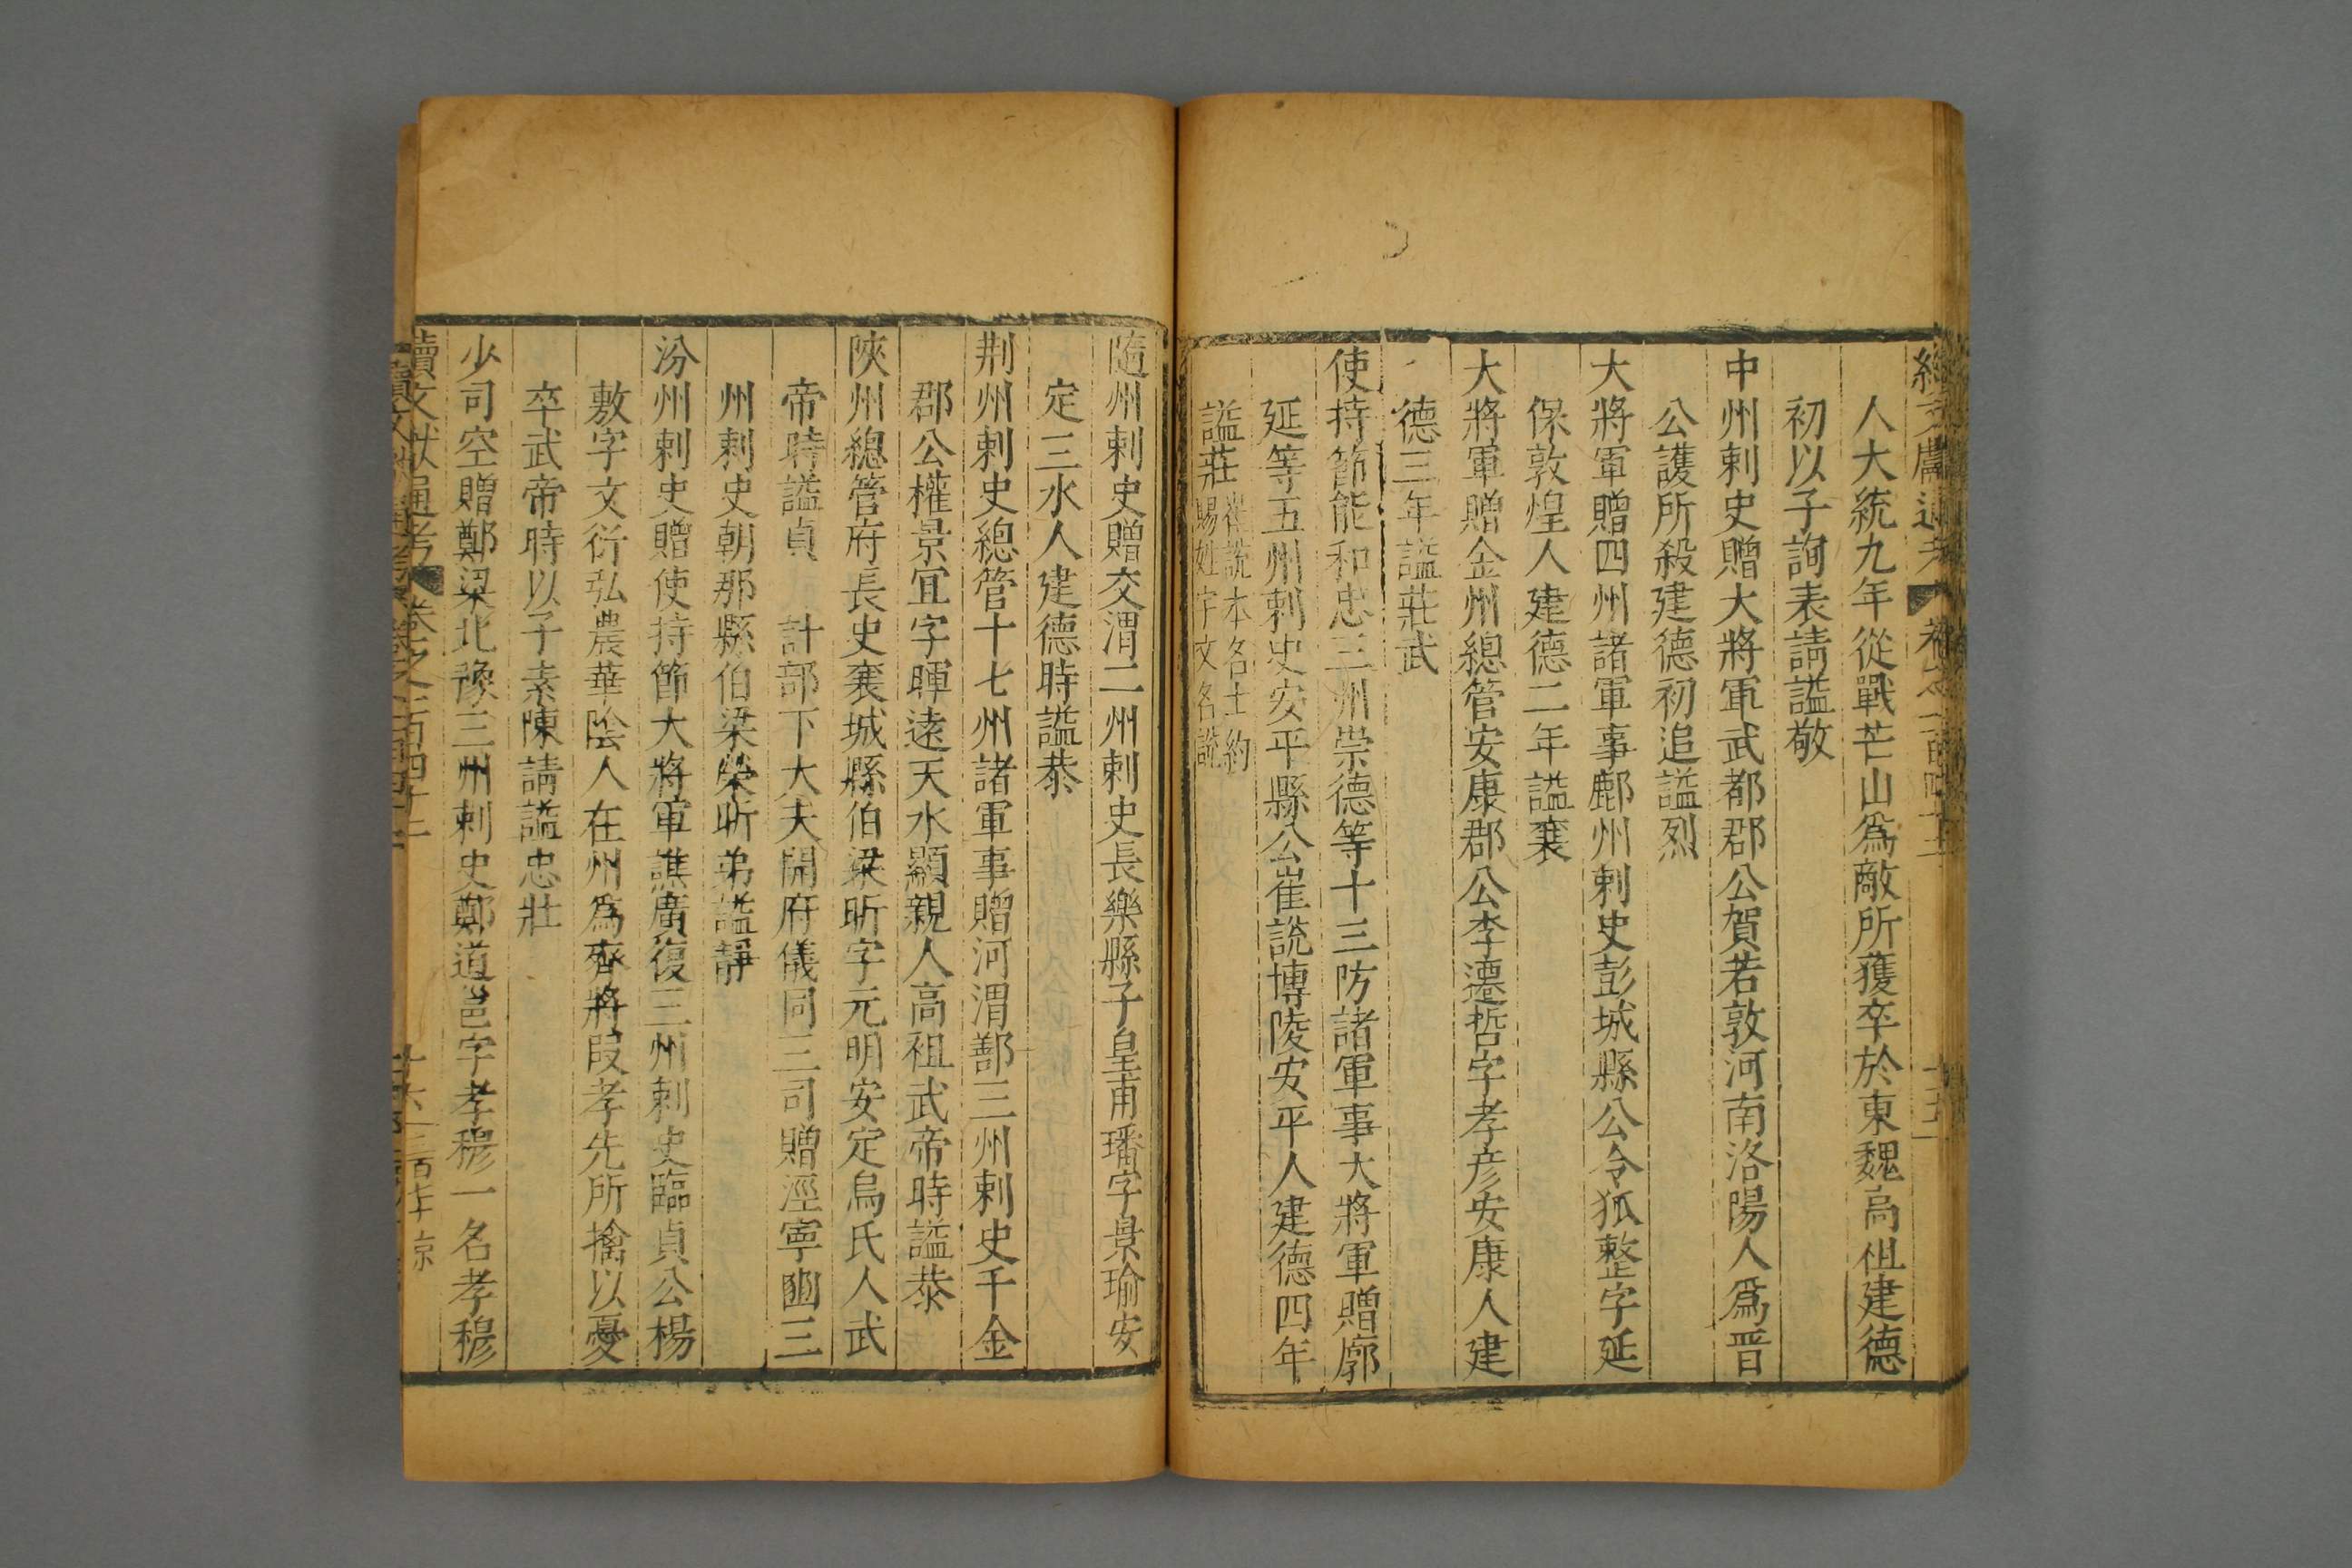 人大統九年從戰芒山爲敵所獲卒於東魏高祖建德
初以子詢表請謚敬
中州刺史贈大將軍武都郡公賀若敦河南洛陽人爲晋
公護所殺建德初追謚烈
大將軍贈四州諸軍事鄜州刺史彭城縣公令狐整字延
保敦煌人建德二年謚襄
大將軍贈金州總管安康郡公李遷哲字孝彦安康人建
德三年謚莊武
使持節能和忠三州崇德等十三防諸軍事大將軍贈廓
延等五州刺史安平縣公崔說博陵安平人建德四年
謚莊崔說本名士約
賜姓宇文名說
隨州刺史贈交渭二州刺史長樂縣子皇甫璠字景瑜安
定三水人建德時謚恭
荆州刺史總管十七州諸軍事贈河渭鄯三州刺史千金
郡公權景宣字暉遠天水顯親人高祖武帝時謚恭
陝州總管府長史襄城縣伯梁昕字元明安定烏氏人武
帝時謚貞 計部下大夫開府儀同三司贈涇寧豳三
州刺史朝那縣伯梁榮昕弟謚靜
汾州刺史贈使持節大將軍譙廣復三州刺史臨貞公楊
敷字文衍弘農華陰人在州爲齊將段孝先所擒以憂
卒武帝時以子素陳請謚忠壯
少司空贈鄭梁北豫三州刺史鄭道邕字孝穆一名孝穆
續文獻通考 卷之一百四十二